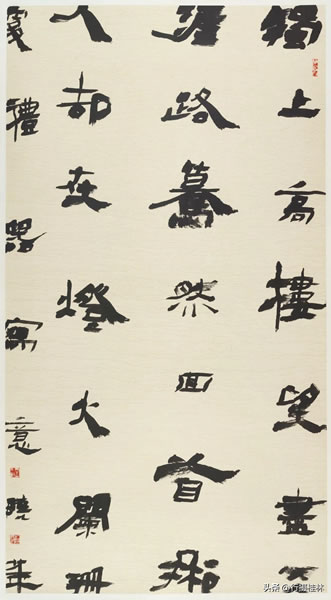 獨上高樓望盡天
涯路驀然回首那
人却在燈火闌珊
禮器寫意曉
头条 @行墨桂林